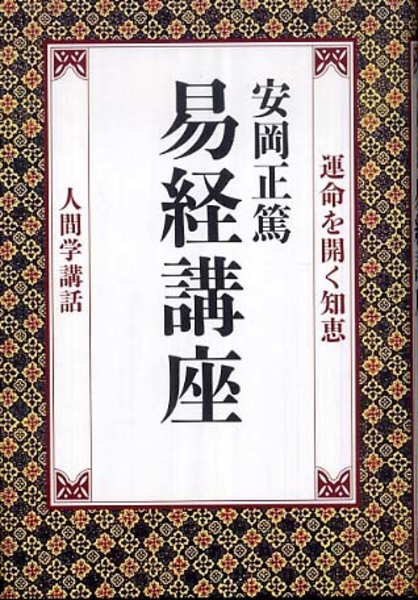 運命を開く知恵
安岡正篤
易経講座
人間学講話